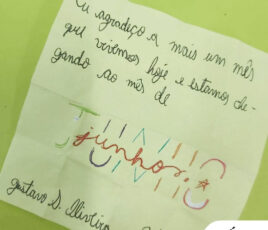 Eu agradeço a mais um mês
que vivemos hoje e estamos che-
gando ao mês de
junho.
Gustavo S. Oliveira